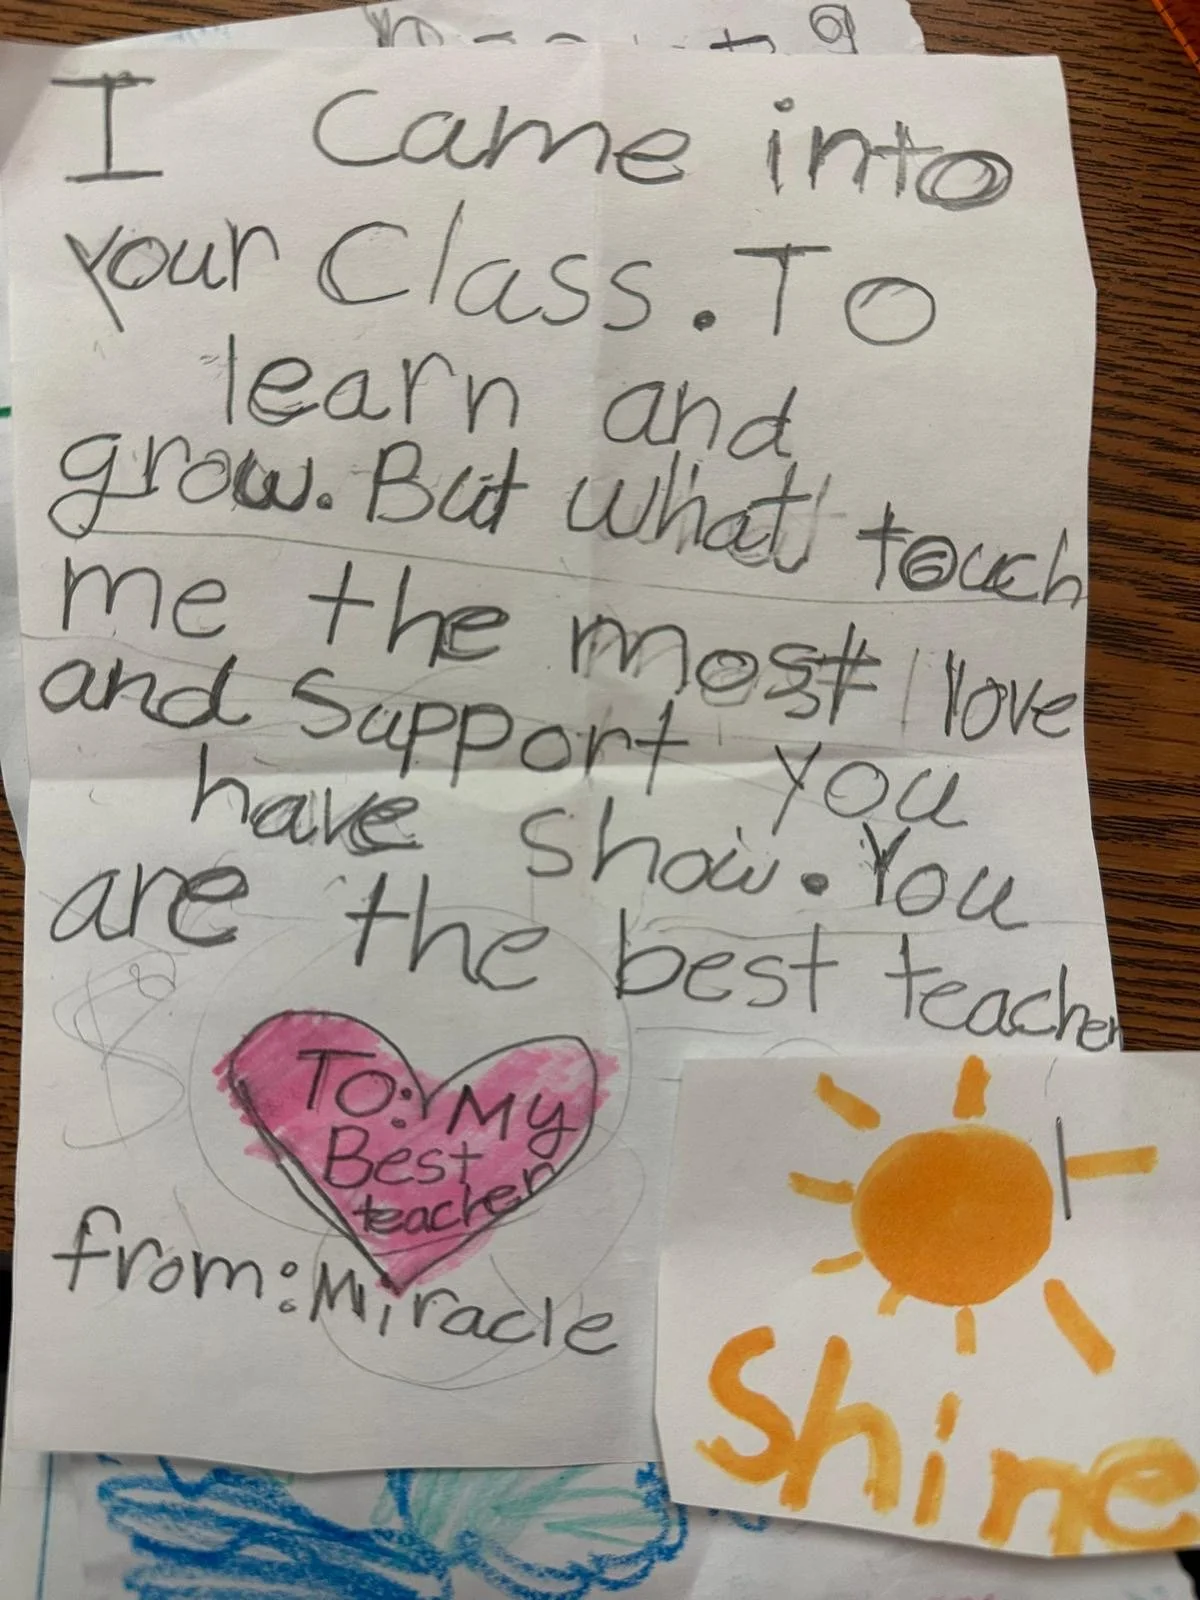 I came into
your Class. To
learn and
grow. But what touch
me the most love
and support you
have show. You
are the best teacher
To: My
Best
teacher
from: Miracle
Shine